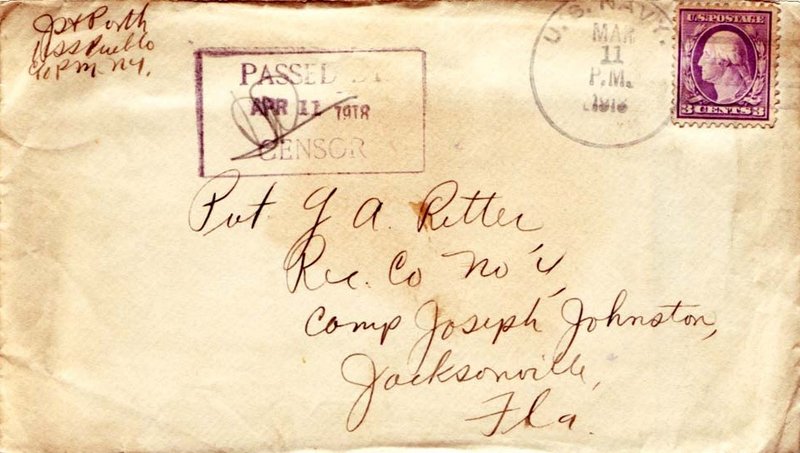 USS Pueblo
℅ P.M. N.Y.
PASSED BY
APR 11 1918
CENSOR
U.S. NAVY.
MAR
11
P.M.
1918
U.S. POSTAGE
3 CENTS 3
Pvt. G A. Ritter
Rec. Co No 4,
Camp Joseph Johnston,
Jacksonville,
Fla.